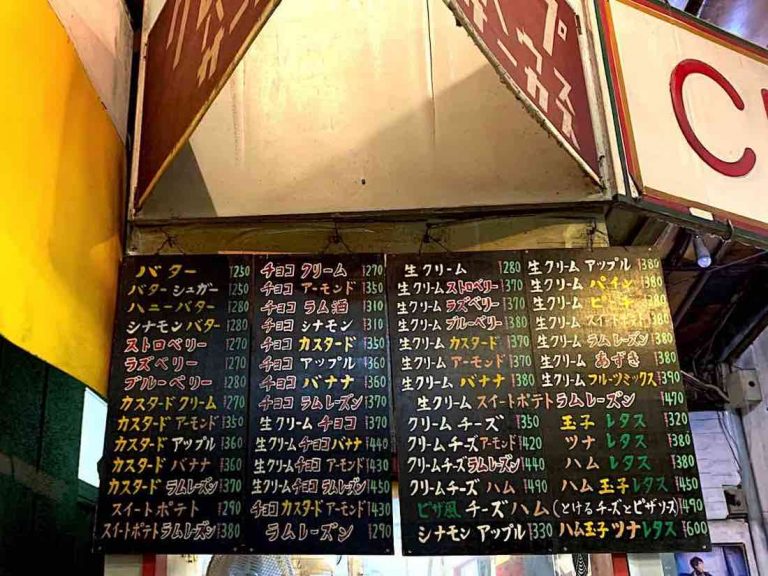 バター ¥250
バターシュガー ¥250
ハニーバター ¥280
シナモンバター ¥280
ストロベリー ¥270
ラズベリー ¥270
ブルーベリー ¥280
カスタードクリーム ¥270
カスタードアーモンド ¥350
カスタードアップル ¥360
カスタードバナナ ¥360
カスタードラムレーズン ¥370
スイートポテト ¥290
スイートポテトラムレーズン ¥380
チョコクリーム ¥270
チョコアーモンド ¥350
チョコラム酒 ¥310
チョコシナモン ¥310
チョコカスタード ¥350
チョコアップル ¥360
チョコバナナ ¥360
チョコラムレーズン ¥370
生クリームチョコ ¥370
生クリームチョコバナナ ¥440
生クリームチョコアーモンド ¥430
生クリームチョコラムレーズン ¥450
チョコカスタードアーモンド ¥430
ラムレーズン ¥290
生クリーム ¥280
生クリームストロベリー ¥370
生クリームラズベリー ¥370
生クリームブルーベリー ¥380
生クリームカスタード ¥370
生クリームアーモンド ¥370
生クリームバナナ ¥380
生クリームアップル ¥380
生クリームパイン ¥380
生クリームピーチ ¥380
生クリームスイートポテト ¥380
生クリームラムレーズン ¥380
生クリームあずき ¥380
生クリームフルーツミックス ¥390
生クリームスイートポテトラムレーズン ¥470
クリームチーズ ¥350
クリームチーズアーモンド ¥420
クリームチーズラムレーズン ¥440
クリームチーズハム ¥490
玉子レタス ¥320
ツナレタス ¥380
ハムレタス ¥380
ハム玉子レタス ¥450
ピザ風チーズハム(とけるチーズとピザソース) ¥490
シナモンアップル ¥330
ハム玉子ツナレタス ¥600